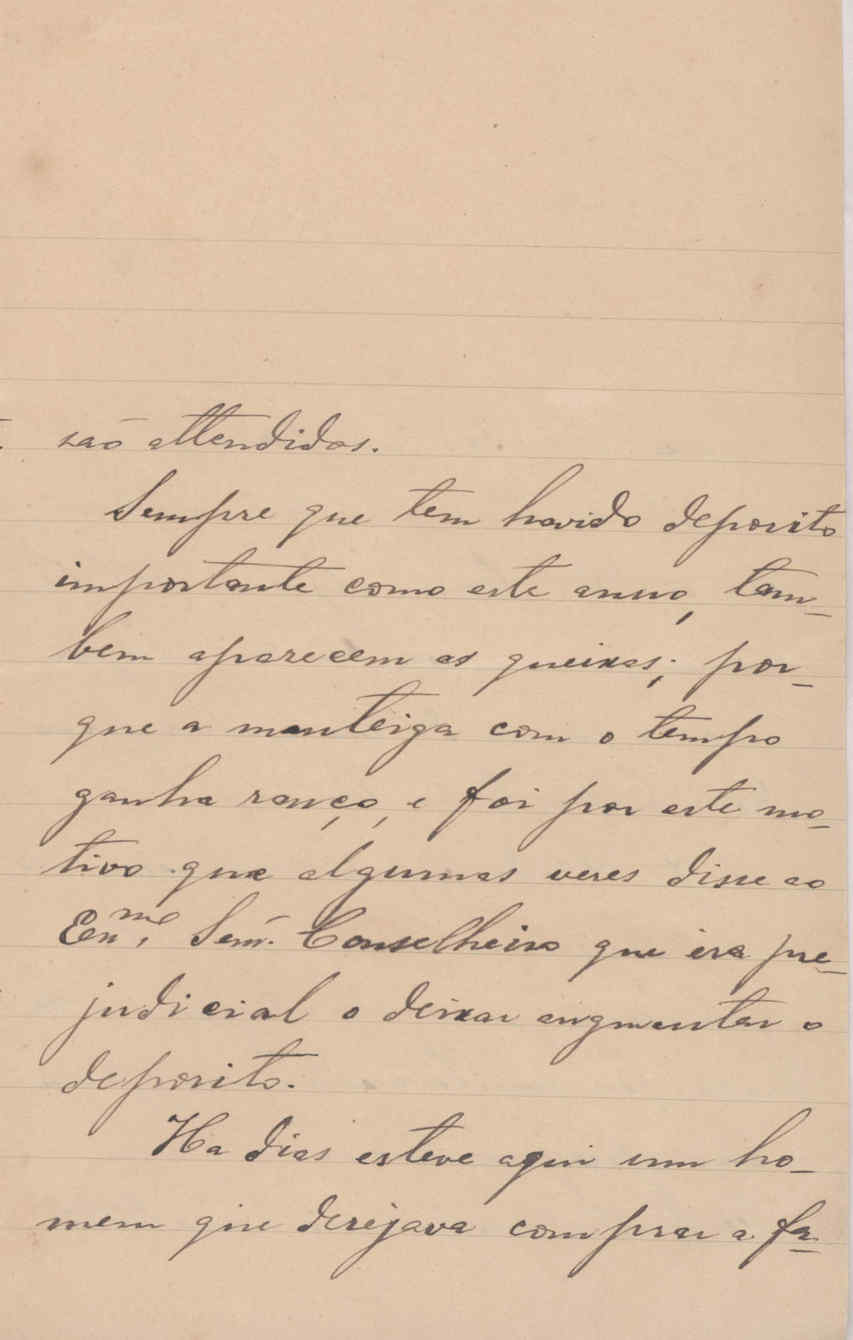 são attendidos.
Sempre que tem havido deposito
importante como este anno, tam-
bem aparecem as queixas; por-
que a manteiga com o tempo
ganha ranço, e foi por este mo-
tivo que algumas veses disse ao
Exmº. Senr. Conselheiro que era pre-
judicial o deixar augmentar o
deposito.
Ha dias esteve aqui um ho-
mem que desejava comprar a fa-